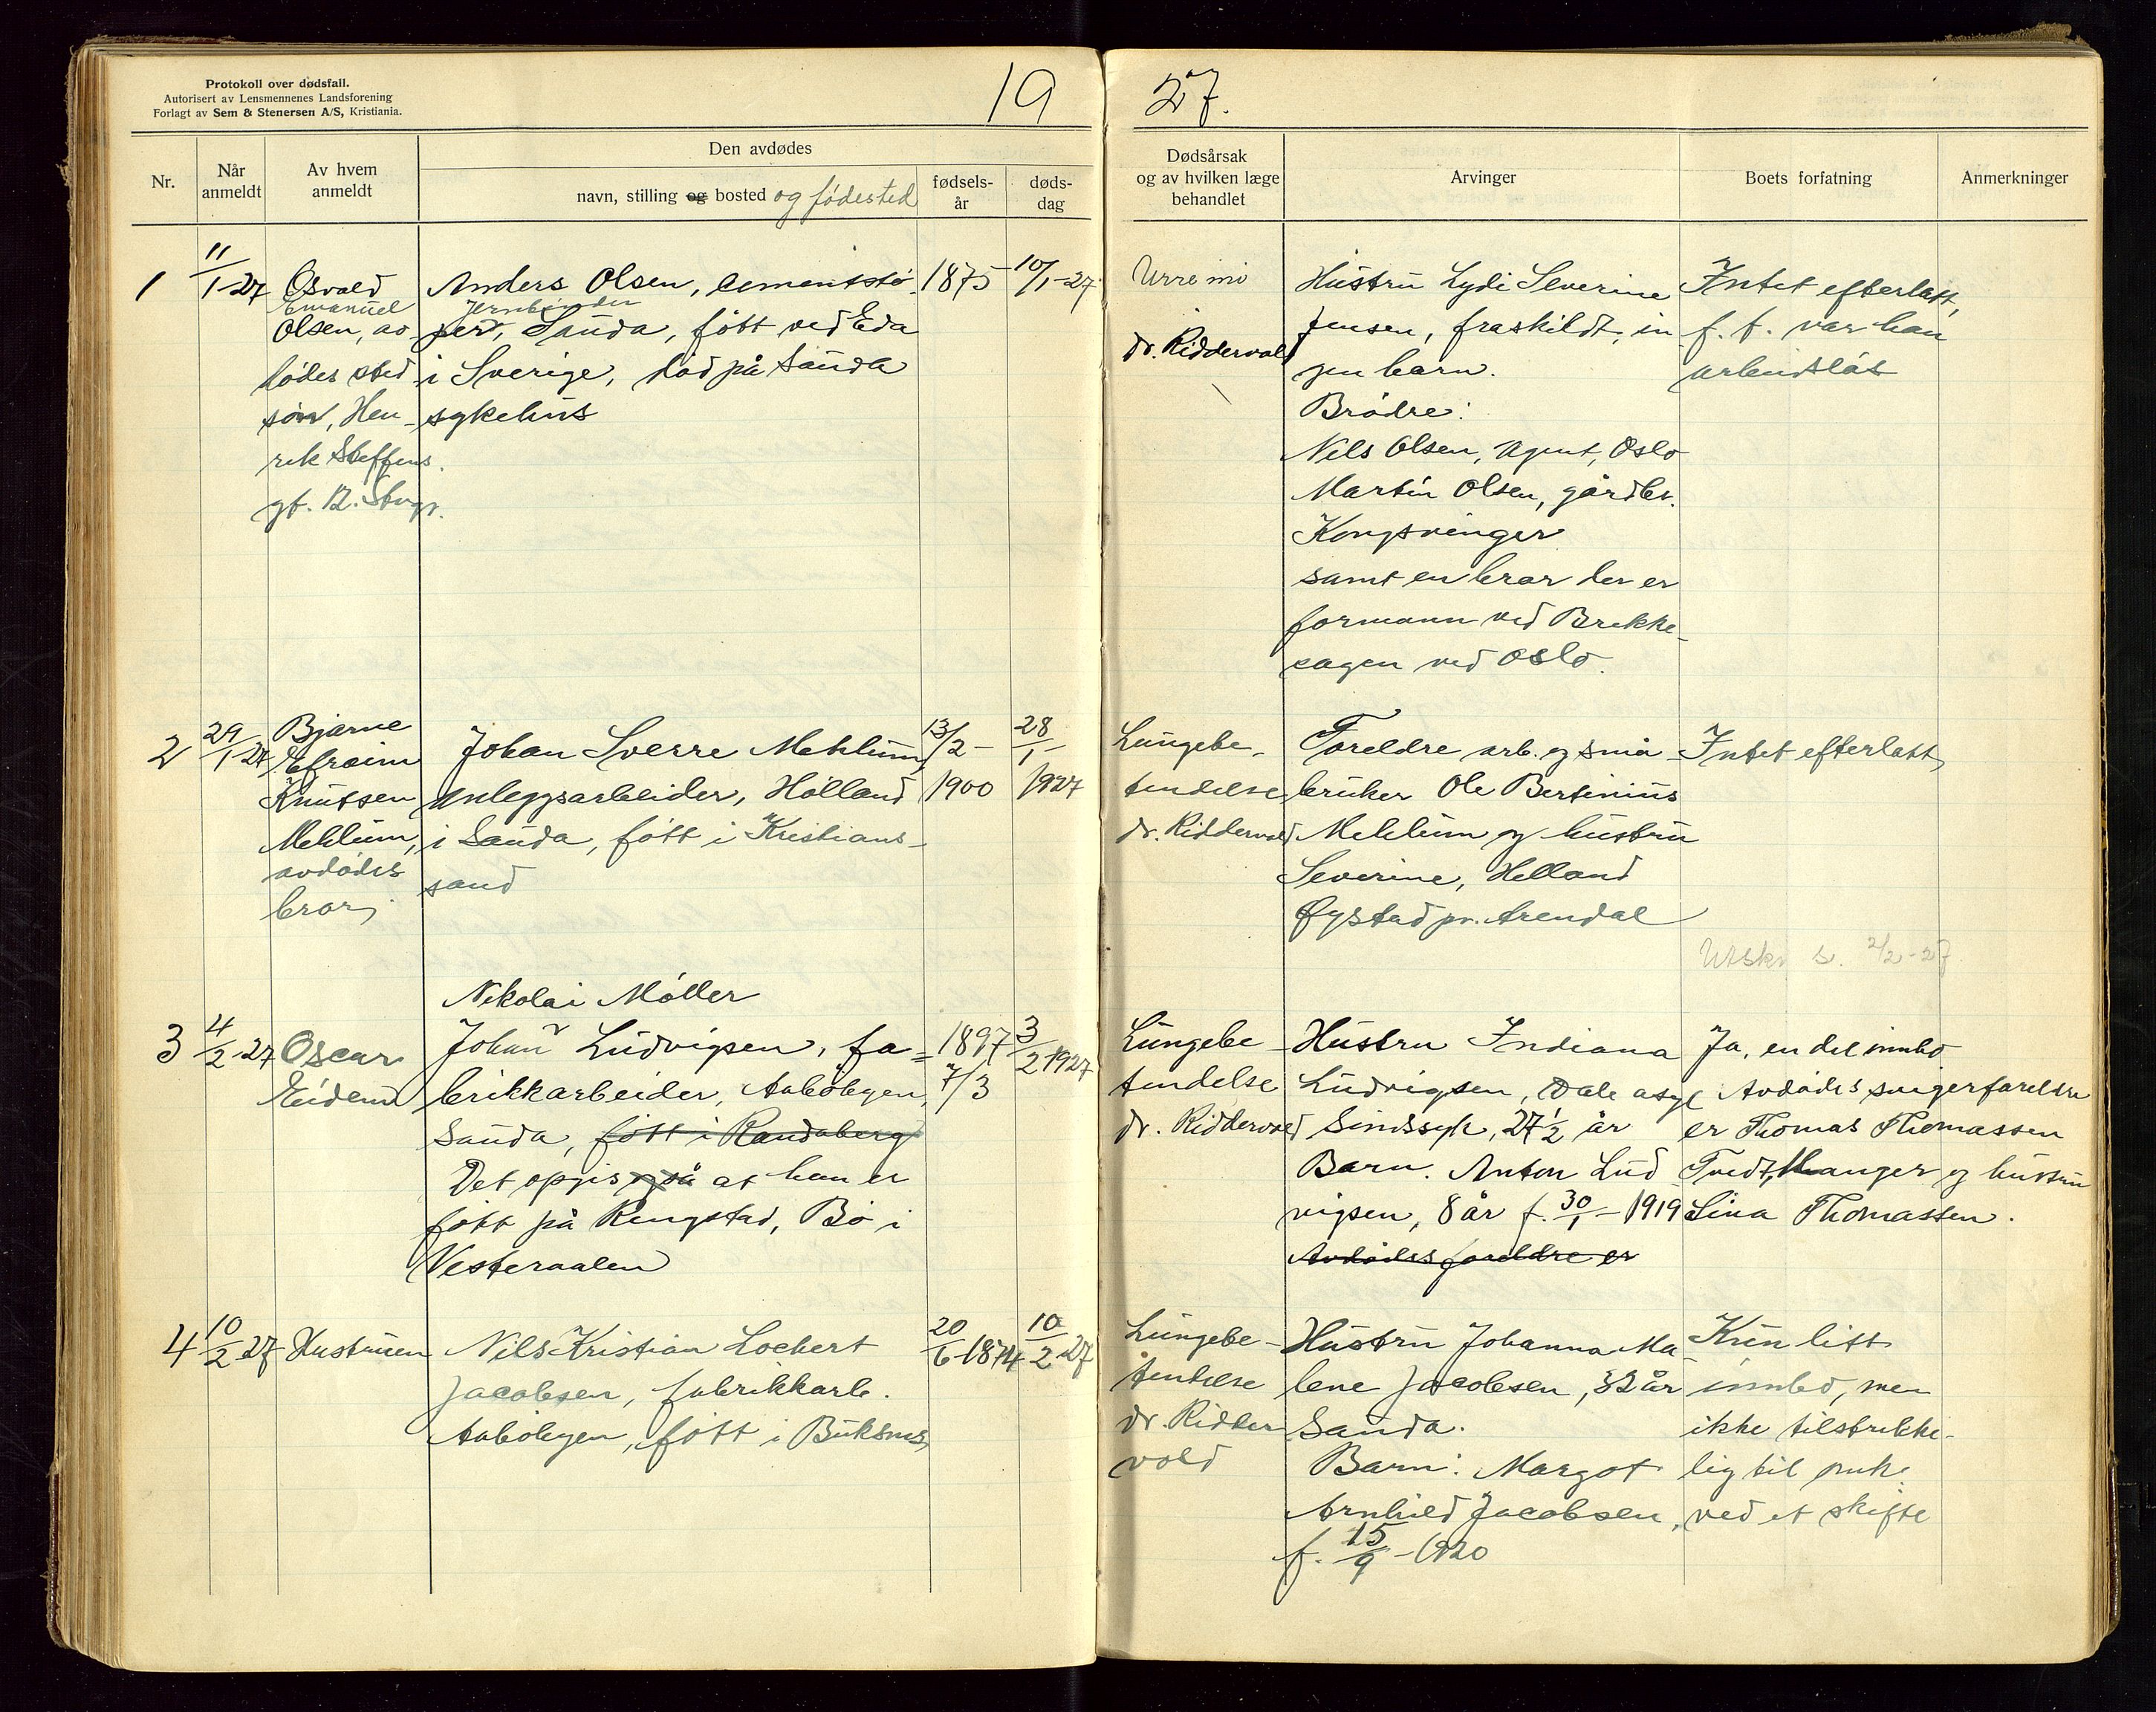 Protokoll over dødsfall.
Autorisert av Lensmennenes Landsforening
Forlagt av Sem & Stenersen A/S, Kristiania.
19
27.
Nr.
Når
anmeldt
Av hvem
anmeldt
Den avdødes
navn, stilling og bosted og fødested
fødsels-
år
døds-
dag
Dødsårsak
og av hvilken læge
behandlet
Arvinger
Boets forfatning
Anmerkninger
1
11/1-27
Osvald
Emanuel
Olsen, av
dødes sted
sønn, Hen-
rik Steffens
gt. 12. Stvgr.
Anders Olsen, cementstø-
Jernbinder
per, Sauda, født ved Eda
i Sverige, død på Sauda
sykehus
1875
10/1-27
Urremi
dr. Riddervold
Hustru Lydi Severine
Jensen, fraskildt, in
gen barn.
Brødre:
Nils Olsen, Agent, Oslo
Martin Olsen, gårdbr.
Kongsvinger
samt en bror der er
formann ved Brekke-
sagen ved Oslo.
Intet efterlatt,
f. t. var han
arbeidsløs
2
29/1-27
Bjarne
Efraim
Knutsen
Mehlum,
avdødes
bror
Johan Sverre Mehlum,
Anleggsarbeider, Hølland
i Sauda, født i Kristians-
sand
13/2-
1900
28/1-
1927
Lungebe-
tendelse
dr. Riddervold
Foreldre arb. og små-
bruker Ole Bertinius
Mehlum og hustru
Severine, Helland
Øystad pr. Arendal
Intet efterlatt
Utskr s. 2/2-27.
3
4/2-27
Oscar
Eidem
Nikolai Møller
Johan Ludvigsen, fa-
brikkarbeider, Aabøbyen,
Sauda, født i Randaberg
Det opgis også at han er
født på Ringstad, Bø i
Vesteraalen
1897
7/3
3/2 1927
Lungebe-
tendelse
dr. Riddervold
Hustru Indiana
Ludvigsen, Dale asyl
Sindssyk, 27 1/2 år
Barn. Anton Lud
vigsen, 8 år f. 30/1-1919
Avdødes foreldre er
Ja, en del innbo
Avdødes svigerforeldre
er Thomas Thomassen
Tvedt, Manger og hustru
Lina Thomassen.
4
10/2-27
Hustruen
Nils Kristian Lockert
Jacobsen, fabrikkarb.
Aabøbyen, født i Buksnes
20/6-1874
10/2-27
Lungebe-
tendelse
dr. Ridder
vold
Hustru Johanna Ma-
lene Jacobsen, 32 år
Sauda.
Barn: Margot
Arnhild Jacobsen,
f. 15/9-1920
Kun litt
innbo, men
ikke tilstrekke-
lig til
ved et skifte